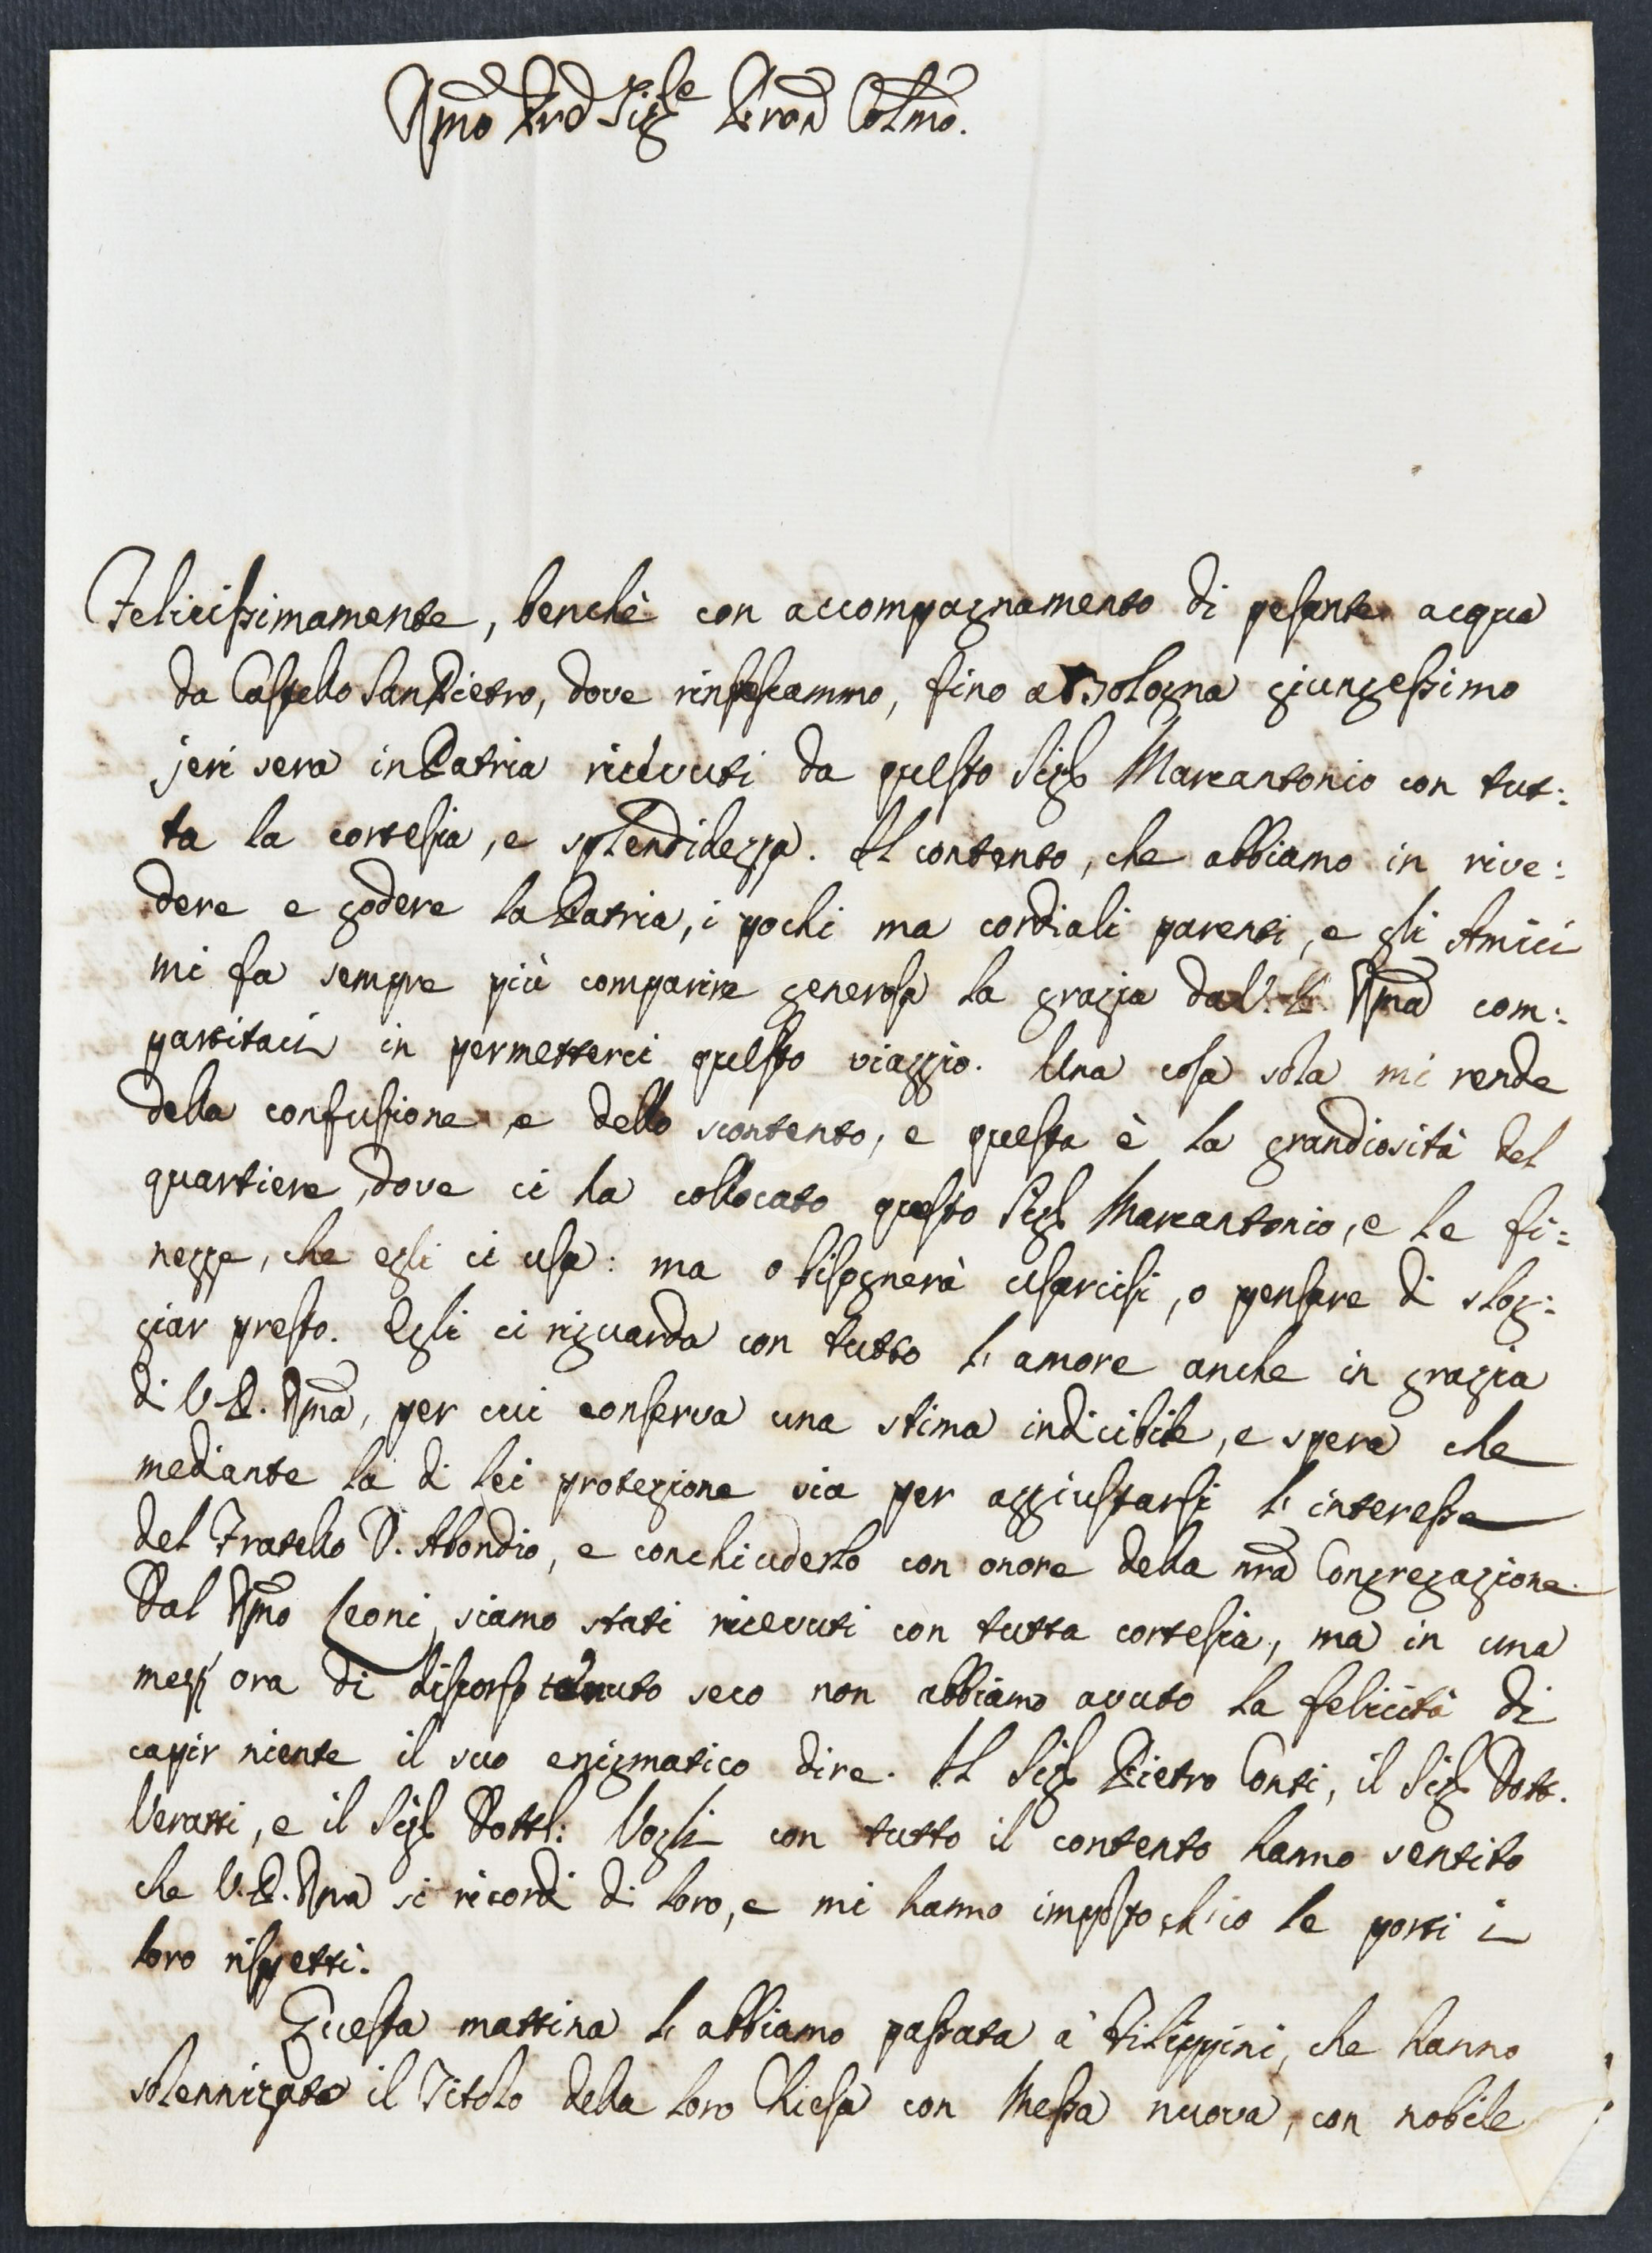 Rmo Pre Sigre Pron Colmo.
Felicissimamente, benchè con accompagnamento di pesante acqua
da Castello San Pietro, dove rinfrescammo, fino a Bologna giungessimo
jeri sera in Patria ricevuti da questo Sigr Marcantonio con tut:
ta la cortesia, e splendidezza. Il contento, che abbiamo in rive:
dere e godere la Patria, i pochi ma cordiali parenti, e gli Amici
mi fa sempre più comparire generosa la grazia da V. P. Rma com:
partitaci in permetterci questo viaggio. Una cosa sola mi rende
della confusione e dello scontento, e questa è la grandiosità del
quartiere, dove ci ha collocato questo Sigr Marcantonio, e le fi:
nezze, che egli ci usa: ma o bisognerà usarcisi, o pensare di slog:
giar presto. Egli ci riguarda con tutto l'amore anche in grazia
di V. P. Rma, per cui conserva una stima indicibile, e spera che
mediante la di lei protezione sia per aggiustarsi l'interesse
del Fratello D. Abondio, e conchiuderlo con onore della nra Congregazione.
Dal Rmo Leoni siamo stati ricevuti con tutta cortesia, ma in una
mezz'ora di discorso tenuto seco non abbiamo avuto la felicità di
capir niente il suo enigmatico dire. Il Sigr Pietro Conti, il Sigr Dott.
Veratti, e il Sigr Dottr: Vogli con tutto il contento hanno sentito
che V. P. Rma si ricordi di loro, e mi hanno imposto ch'io le porti i
loro rispetti.
Questa mattina l'abbiamo passata a' Filippini, che hanno
solennizato il Titolo della loro Chiesa con Messa nuova, con nobile